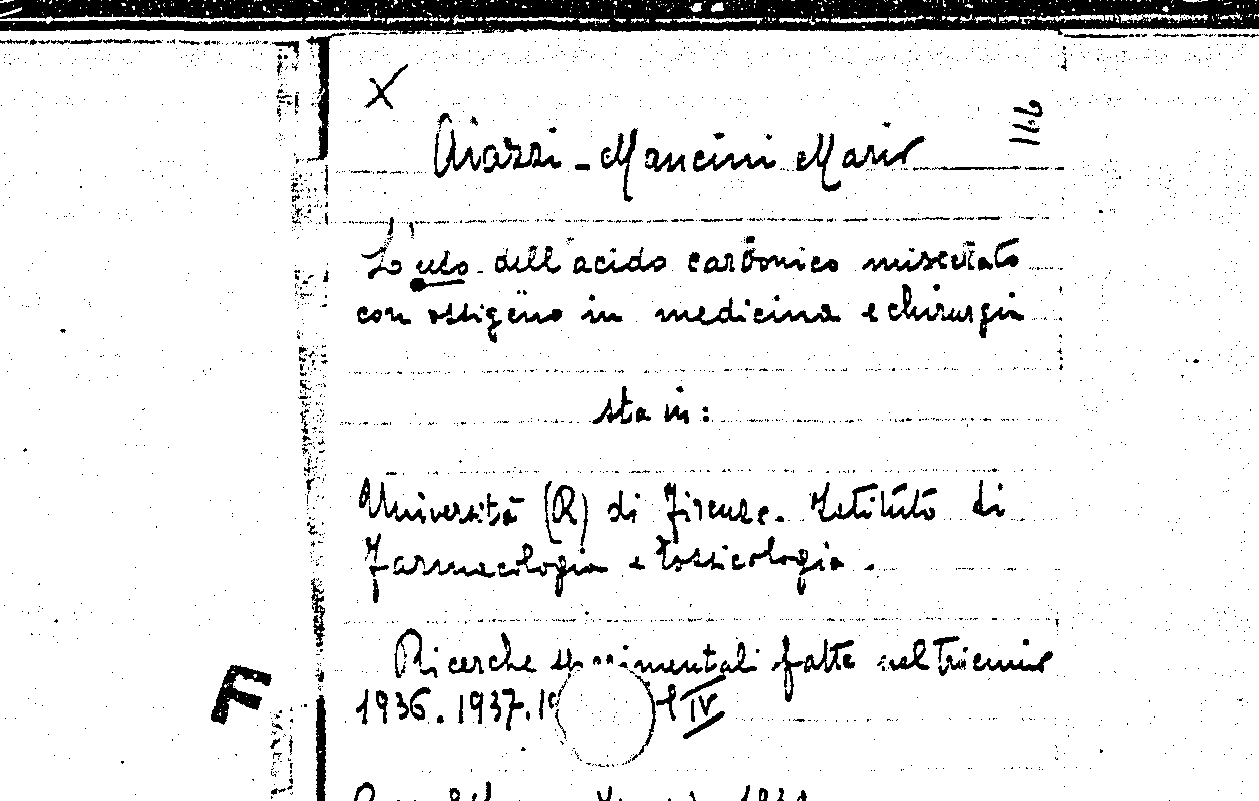 X
9 III
Aiazzi - Mancini Mario
L'uso dell'acido carbonico miscelato
con ossigeno in medicina e chirurgia
sta in:
Università (R) di Firenze. Istituto di
Farmacologia e tossicologia.
Ricerche sperimentali fatte nel triennio
1936. 1937. 19 IV
F